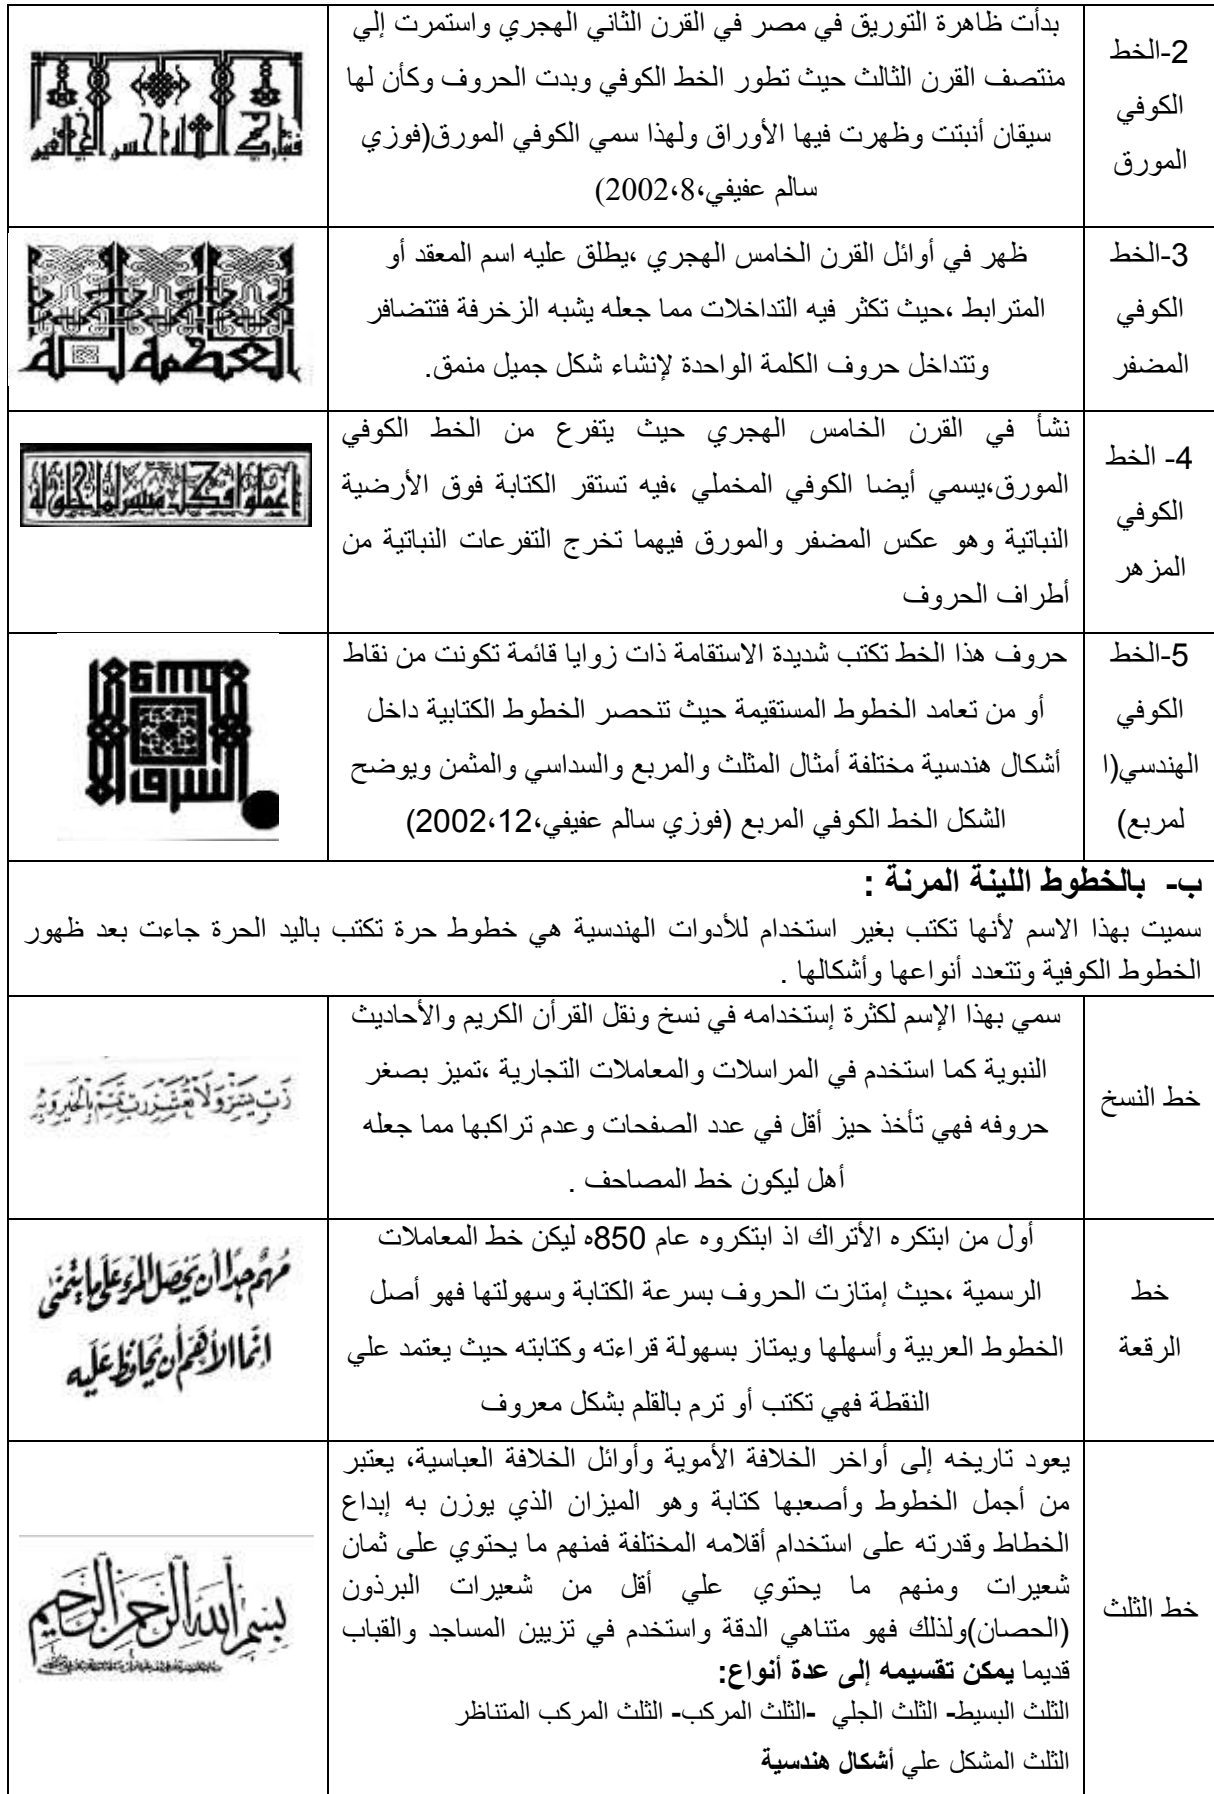 2-الخط
الكوفي
المورق
بدأت ظاهرة التوريق في مصر في القرن الثاني الهجري واستمرت إلي
منتصف القرن الثالث حيث تطور الخط الكوفي وبدت الحروف وكأن لها
سيقان أنبتت وظهرت فيها الأوراق ولهذا سمي الكوفي المورق(فوزي
سالم عفيفي،8،2002)
3-الخط
الكوفي
المضفر
ظهر في أوائل القرن الخامس الهجري ،يطلق عليه اسم المعقد أو
المترابط ،حيث تكثر فيه التداخلات مما جعله يشبه الزخرفة فتتضافر
وتتداخل حروف الكلمة الواحدة لإنشاء شكل جميل منمق.
4- الخط
الكوفي
المزهر
نشأ في القرن الخامس الهجري حيث يتفرع من الخط الكوفي
المورق،يسمي أيضا الكوفي المخملي ،فيه تستقر الكتابة فوق الأرضية
النباتية وهو عكس المضفر والمورق فيهما تخرج التفرعات النباتية من
أطراف الحروف
5-الخط
الكوفي
الهندسي(ا
لمربع)
حروف هذا الخط تكتب شديدة الاستقامة ذات زوايا قائمة تكونت من نقاط
أو من تعامد الخطوط المستقيمة حيث تنحصر الخطوط الكتابية داخل
أشكال هندسية مختلفة أمثال المثلث والمربع والسداسي والمثمن ويوضح
الشكل الخط الكوفي المربع (فوزي سالم عفيفي،12،2002)
ب- بالخطوط اللينة المرنة :
سميت بهذا الاسم لأنها تكتب بغير استخدام للأدوات الهندسية هي خطوط حرة تكتب باليد الحرة جاءت بعد ظهور
الخطوط الكوفية وتتعدد أنواعها وأشكالها .
خط النسخ
سمي بهذا الإسم لكثرة إستخدامه في نسخ ونقل القرأن الكريم والأحاديث
النبوية كما استخدم في المراسلات والمعاملات التجارية ،تميز بصغر
حروفه فهي تأخذ حيز أقل في عدد الصفحات وعدم تراكبها مما جعله
أهل ليكون خط المصاحف .
خط
الرقعة
أول من ابتكره الأتراك اذ ابتكروه عام 850ه ليكن خط المعاملات
الرسمية ،حيث إمتازت الحروف بسرعة الكتابة وسهولتها فهو أصل
الخطوط العربية وأسهلها ويمتاز بسهولة قراءته وكتابته حيث يعتمد علي
النقطة فهي تكتب أو ترم بالقلم بشكل معروف
مُهِمٌّ جِدًّا أَن يَحْصَلَ المَرْءُ عَلَى مَا يَتَمَنَّى
انَّمَا الأَهَمّ أَن يُحَافِظَ عَلَيه
خط الثلث
يعود تاريخه إلى أواخر الخلافة الأموية وأوائل الخلافة العباسية، يعتبر
من أجمل الخطوط وأصعبها كتابة وهو الميزان الذي يوزن به إبداع
الخطاط وقدرته على استخدام أقلامه المختلفة فمنهم ما يحتوي على ثمان
شعيرات ومنهم ما يحتوي علي أقل من شعيرات البرذون
(الحصان)ولذلك فهو متناهي الدقة واستخدم في تزيين المساجد والقباب
قديما يمكن تقسيمه إلى عدة أنواع:
الثلث البسيط- الثلث الجلي -الثلث المركب- الثلث المركب المتناظر
الثلث المشكل علي أشكال هندسية
بسم الله الرحمن الرحيم